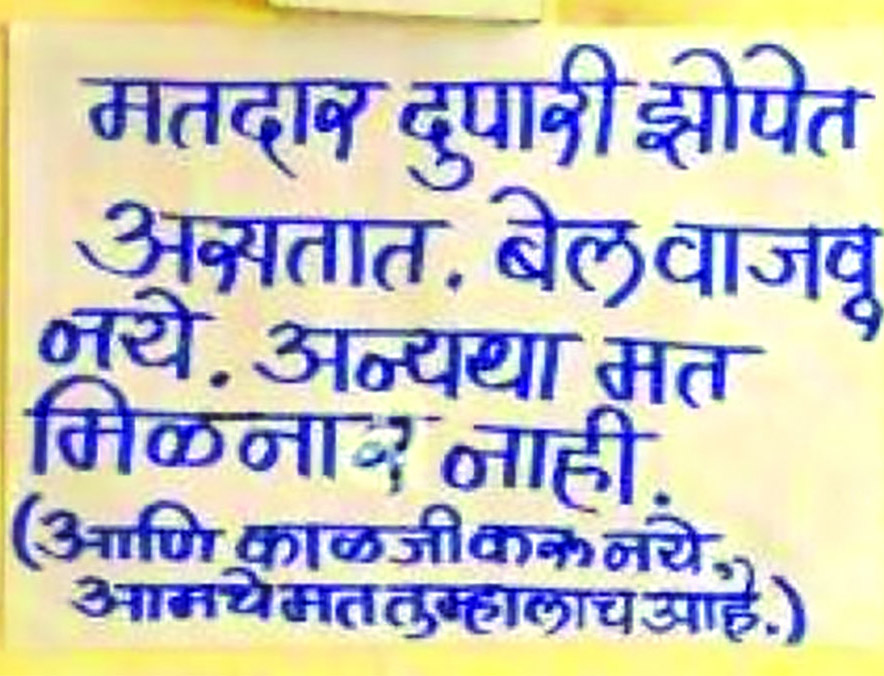 मतदार दुपारी झोपेत
असतात. बेल वाजवू
नये. अन्यथा मत
मिळनार नाही.
(आणि काळजी करू नये.
आमचे मत तुम्हालाच आहे.)